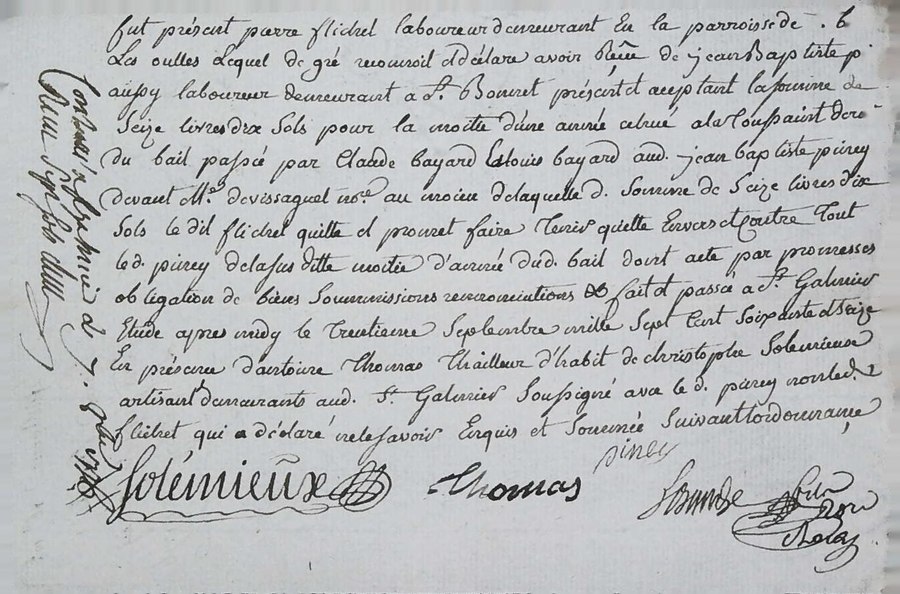 fut présent pierre flichet laboureur demeurant En la parroisse de
Les oulles Lequel de gré reconnoit et déclare avoir Reçu de jean Baptiste
aussy laboureur demeurant a St. Bonnet présent et aceptant la somme de
Seize livres dix Sols pour la moitié d'une année echue a la Toussaint
du bail passée par Claude bayard et louis bayard aud. jean baptiste pirey
devant Me. devissaguet nore. au moien de laquelle d. Somme de Seize livres dix
Sols le dit flichet quitte et promet faire Tenir quitte Envers et Contre Tout
le d. pirey de la sus ditte moitié d'année dud. bail dont acte par promesses
obligation de biens Soummissions renonciations & fait et passé a St. Galmier
Etude apres midy le Trentieme Septembre mille Sept Cent Soixante et Seize
En présence d'antoine Thomas Thailleur d'habit de christophe Solemieux
artisant demeurants aud. St. Galmier Soussigné avec le d. pirey non led.
flichet qui a déclaré ne le savoir Enquis et Sommée Suivant lordonnance
pirey
Solémieux Thomas
Controllé a St. galmier le 7. 8bre 1776
Reçu